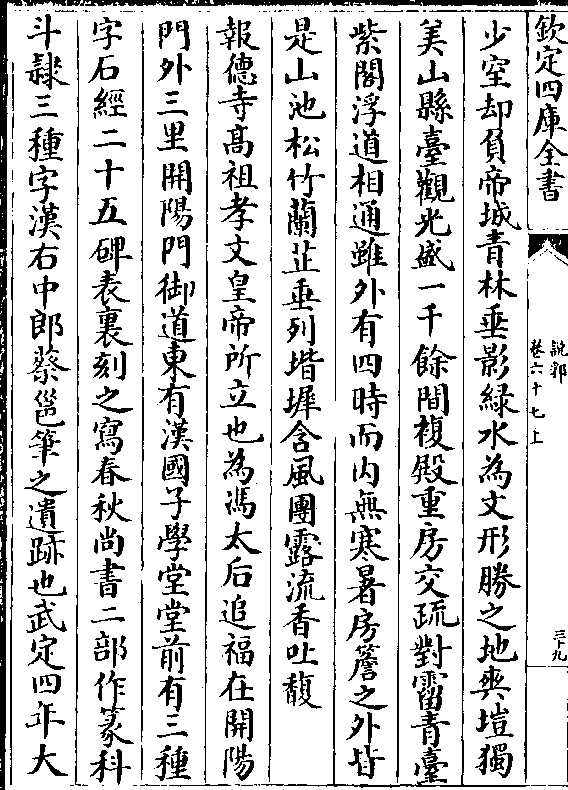 欽定四庫全書
説郛
卷六十七上
三十九
少室却負帝城青林垂影緑水為文形勝之地爽塏獨
美山縣臺觀光盛一千餘間複殿重房交疏對霤青臺
紫閣浮道相通雖外有四時而内無寒暑房簷之外皆
是山池松竹蘭芷垂列堦墀含風團露流香吐馥
報德寺髙祖孝文皇帝所立也為馮太后追福在開陽
門外三里開陽門御道東有漢國子學堂堂前有三種
字石經二十五碑表裏刻之寫春秋尚書二部作篆科
斗隸三種字漢右中郎蔡邕筆之遺跡也武定四年大